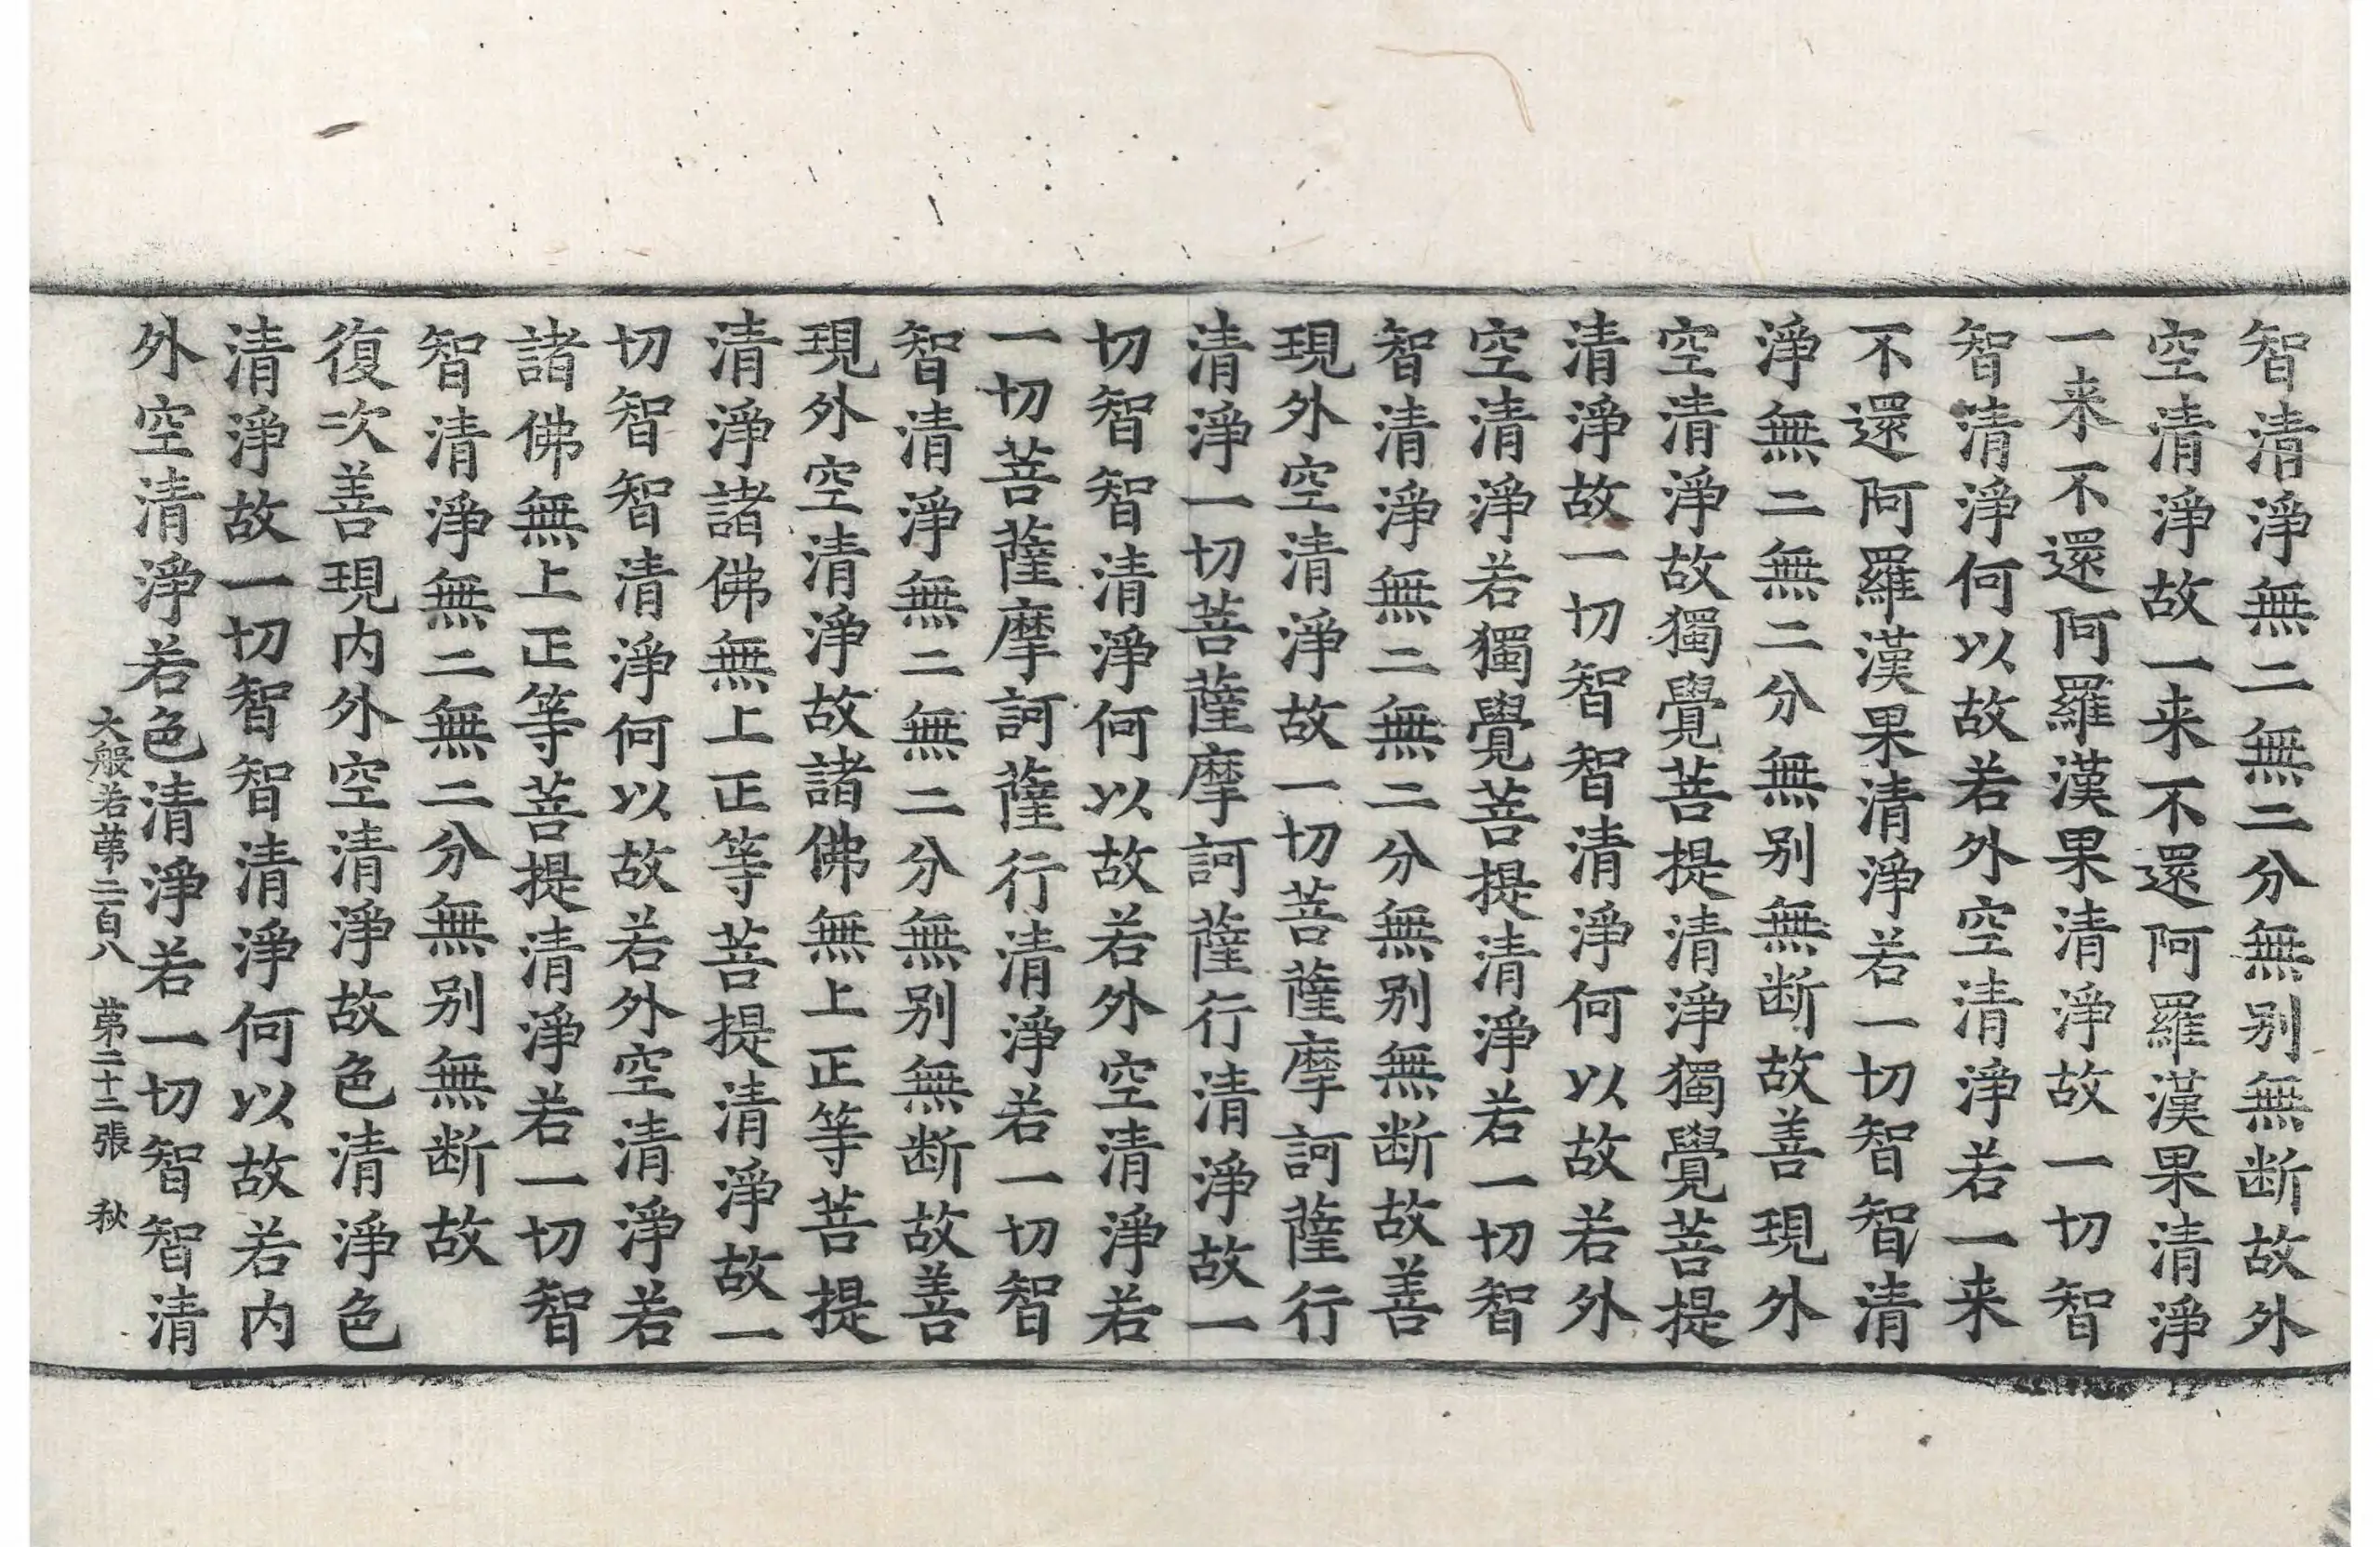 智清淨無二無二分無别無断故外
空清淨故一来不還阿羅漢果清淨
一来不還阿羅漢果清淨故一切智
智清淨何以故若外空清淨若一来
不還阿羅漢果清淨若一切智智清
淨無二無二分無别無断故善現外
空清淨故獨覺菩提清淨獨覺菩提
清淨故一切智智清淨何以故若外
空清淨若獨覺菩提清淨若一切智
智清淨無二無二分無别無断故善
現外空清淨故一切菩薩摩訶薩行
清淨一切菩薩摩訶薩行清淨故一
切智智清淨何以故若外空清淨若
一切菩薩摩訶薩行清淨若一切智
智清淨無二無二分無别無断故善
現外空清淨故諸佛無上正等菩提
清淨諸佛無上正等菩提清淨故一
切智智清淨何以故若外空清淨若
諸佛無上正等菩提清淨若一切智
智清淨無二無二分無别無断故
復次善現内外空清淨故色清淨色
清淨故一切智智清淨何以故若内
外空清淨若色清淨若一切智智清
大般若苐二百八 苐二十二張 秋